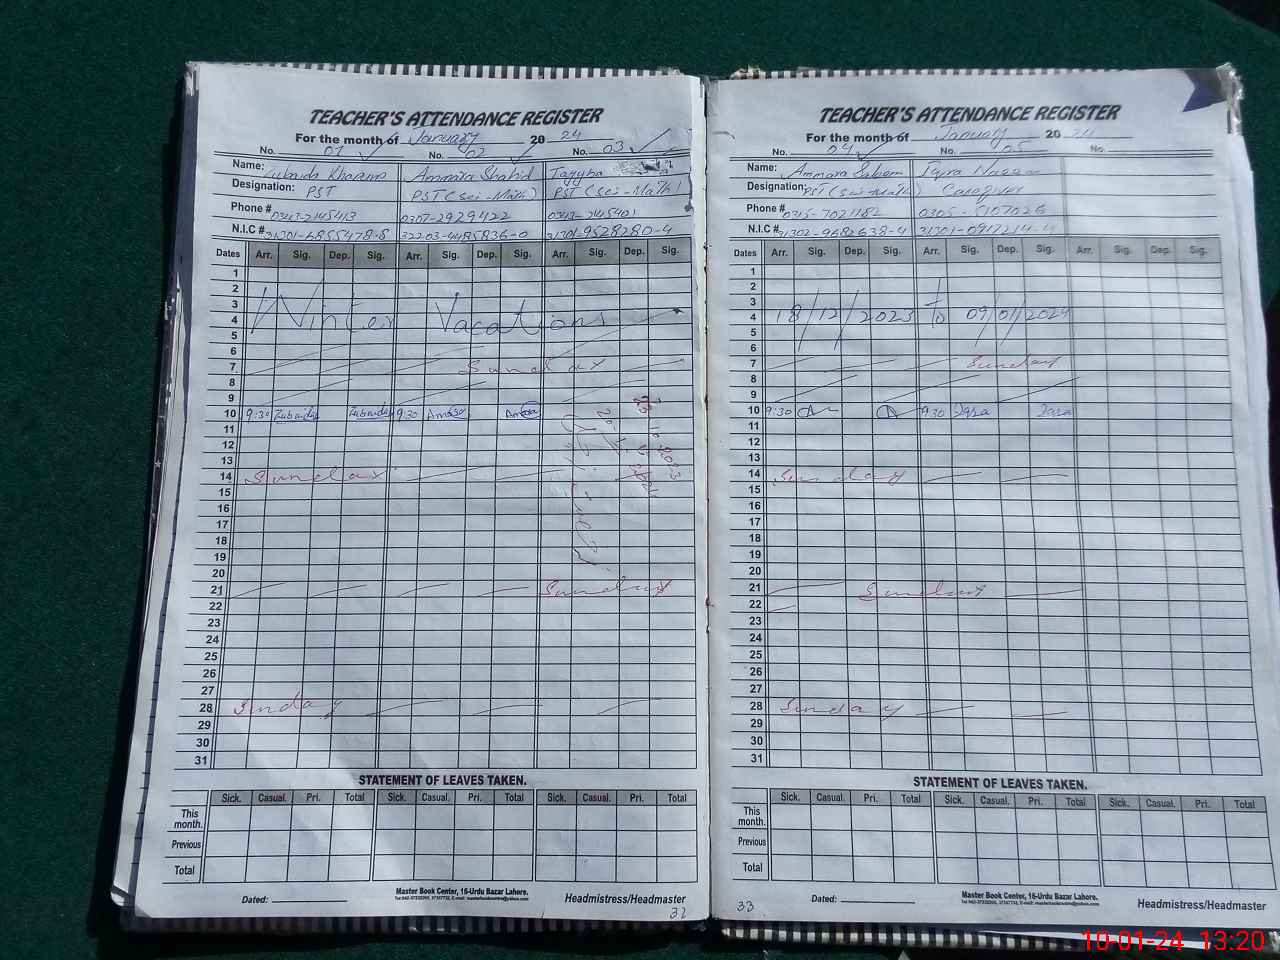 TEACHER'S ATTENDANCE REGISTER
For the month of January 20 24
No. 01 No. 02 No. 03
Name: Ammara Shahid Tayyba
Designation: PST PST (Sci-Math) PST (Sci-Math)
Phone # 0307-2929422
N.I.C # 31301-6855478-8 32203-4485836-0 31301-9528280-4
Dates Arr. Sig. Dep. Sig. Arr. Sig. Dep. Sig. Arr. Sig. Dep. Sig.
1
2
3
4 Winter Vacations
5
6
7 Sunday
8
9
10 9:30 Zubaida Zubaida 9:30
11
12
13
14 Sunday
15
16
17
18
19
20
21 Sunday
22
23
24
25
26
27
28 Sunday
29
30
31
STATEMENT OF LEAVES TAKEN.
Sick. Casual. Pri. Total Sick. Casual. Pri. Total Sick. Casual. Pri. Total
This month.
Previous
Total
Master Book Center, 16-Urdu Bazar Lahore.
Dated: Headmistress/Headmaster
32
TEACHER'S ATTENDANCE REGISTER
For the month of January 20 24
No. 04 No. 05 No.
Name: Ammara Saleem Iqra
Designation: PST (Sci-Math) Caregiver
Phone # 0315-7021182 0305-5107026
N.I.C # 31302-9682638-4
Dates Arr. Sig. Dep. Sig. Arr. Sig. Dep. Sig. Arr. Sig. Dep. Sig.
1
2
3
4 18/12/2023 to 09/01/2024
5
6
7 Sunday
8
9
10 9:30 9:30 Iqra Iqra
11
12
13
14 Sunday
15
16
17
18
19
20
21 Sunday
22
23
24
25
26
27
28 Sunday
29
30
31
STATEMENT OF LEAVES TAKEN.
Sick. Casual. Pri. Total Sick. Casual. Pri. Total Sick. Casual. Pri. Total
This month.
Previous
Total
Master Book Center, 16-Urdu Bazar Lahore.
Dated: Headmistress/Headmaster
33
10-01-24 13:20